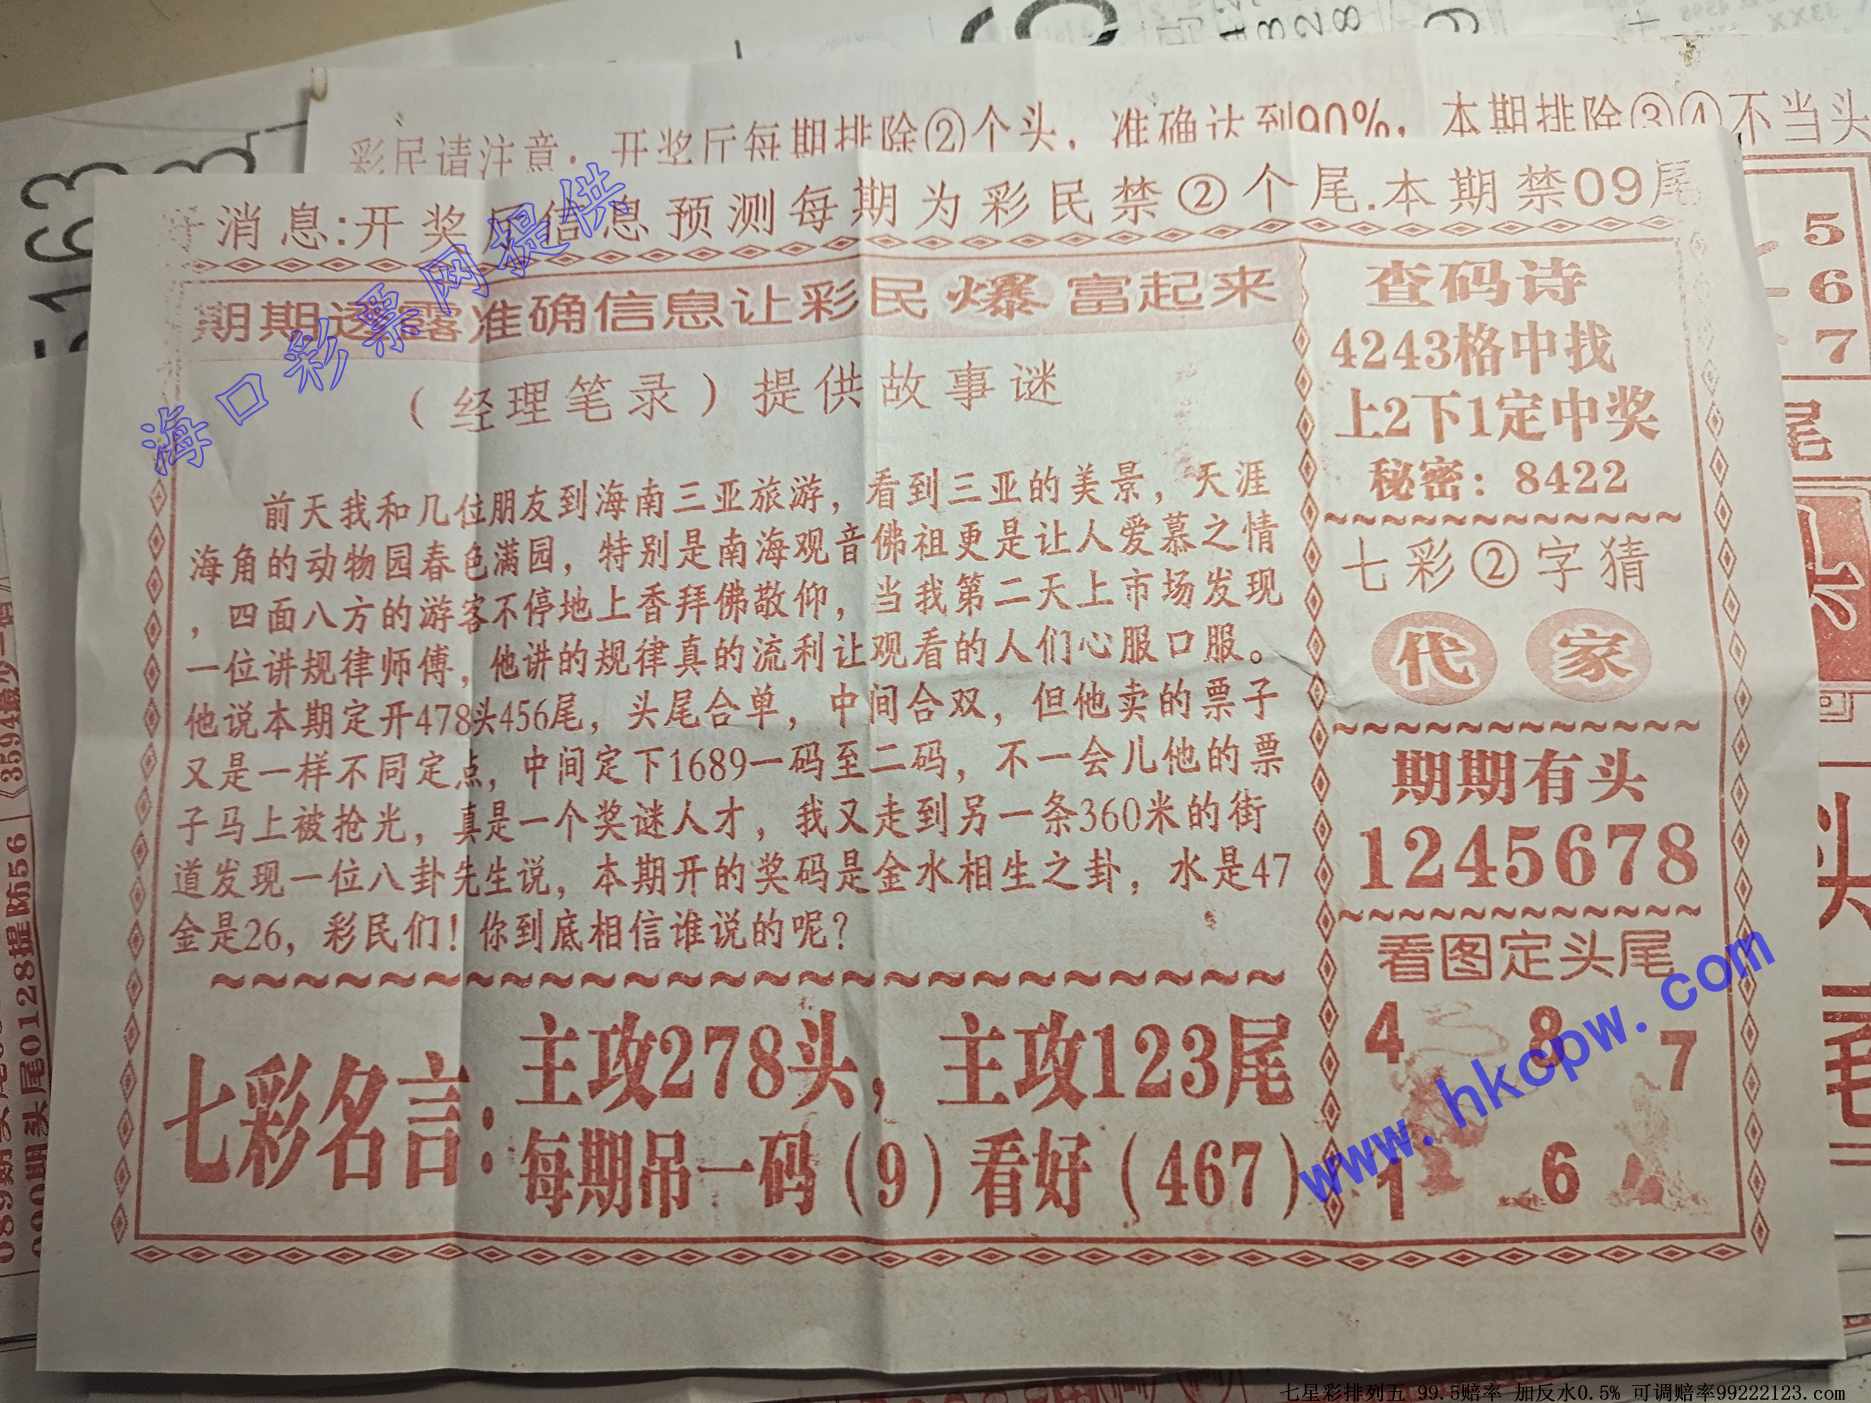 彩民请注意：开奖厅每期排除②个头，准确达到90%，本期排除③④不当头
消息:开奖厅信息预测每期为彩民禁②个尾.本期禁09尾
期期透露准确信息让彩民爆富起来
（经理笔录）提供故事谜
前天我和几位朋友到海南三亚旅游，看到三亚的美景，天涯
海角的动物园春色满园，特别是南海观音佛祖更是让人爱慕之情
，四面八方的游客不停地上香拜佛敬仰，当我第二天上市场发现
一位讲规律师傅，他讲的规律真的流利让观看的人们心服口服。
他说本期定开478头456尾，头尾合单，中间合双，但他卖的票子
又是一样不同定点，中间定下1689一码至二码，不一会儿他的票
子马上被抢光，真是一个奖谜人才，我又走到另一条360米的街
道发现一位八卦先生说，本期开的奖码是金水相生之卦，水是47
金是26，彩民们！你到底相信谁说的呢？
七彩名言：
主攻278头，主攻123尾
每期吊一码（9）看好（467）
查码诗
4243格中找
上2下1定中奖
秘密：8422
七彩②字猜
代 家
期期有头
1245678
看图定头尾
4 8 7
1 6
5
6
7
尾
头
5163
海口彩票网提供
www.hkcpw.com
七星彩排列五 99.5赔率 加反水0.5% 可调赔率99222123.com